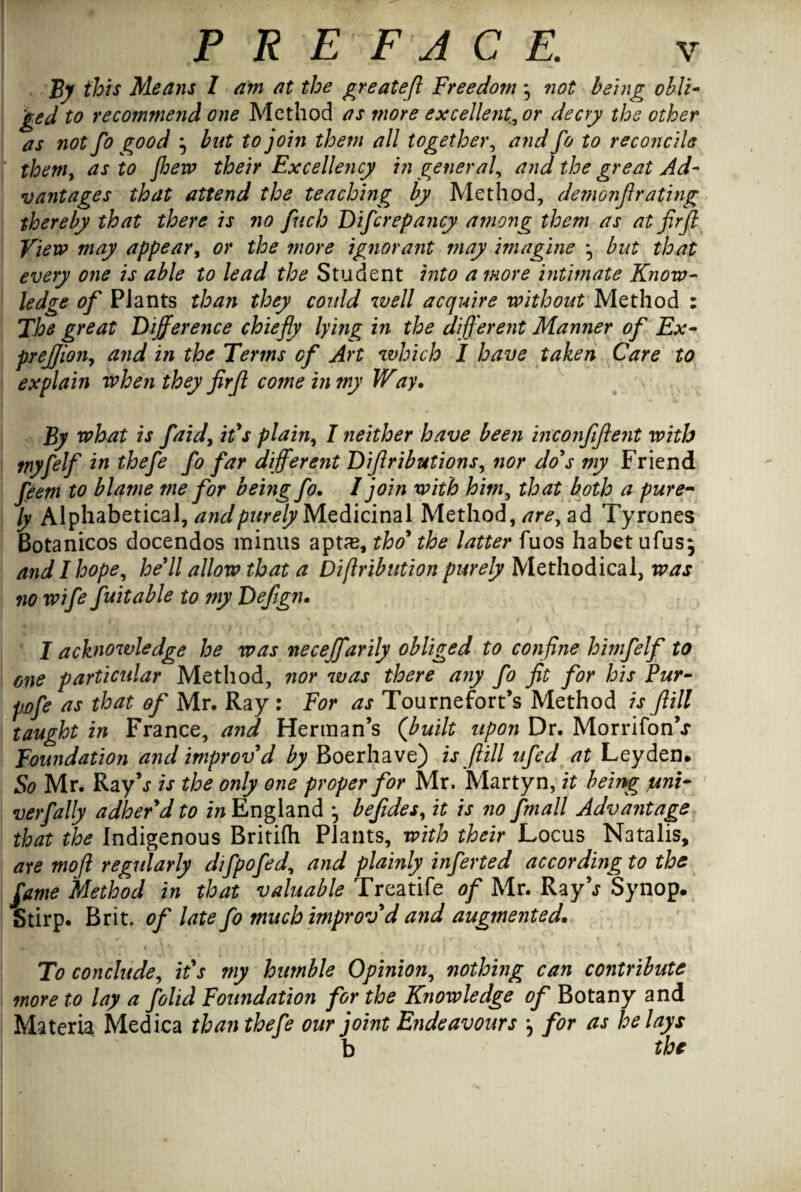 PREFACE. v
By this Means I am at the greateſt Freedom ; not being obli-
ged to recommend one Method as more excellent, or decry the other
as not ſo good ; but to join them all together, and ſo to reconcile
them, as to ſhew their Excellency in general, and the great Ad-
vantages that attend the teaching by Method, demonſtrating
thereby that there is no ſuch Diſcrepancy among them as at firſt
View may appear, or the more ignorant may imagine ; but that
every one is able to lead the Student into a more intimate Know-
ledge of Plants than they could well acquire without Method :
The great Difference chiefly lying in the different Manner of Ex-
preſſion, and in the Terms of Art which I have taken Care to
explain when they firſt come in my Way.
By what is ſaid, it's plain, I neither have been inconſiſtent with
myſelf in theſe ſo far different Diſtributions, nor do's my Friend
ſeem to blame me for being ſo. I join with him, that both a pure-
ly Alphabetical, and purely Medicinal Method, are, ad Tyrones
Botanicos docendos minus aptæ, tho' the latter ſuos habet uſus;
and I hope, he'll allow that a Diſtribution purely Methodical, was
no wiſe ſuitable to my Deſign.
I acknowledge he was neceſſarily obliged to confine himſelf to
one particular Method, nor was there any ſo fit for his Pur-
poſe as that of Mr. Ray : For as Tournefort's Method is ſtill
taught in France, and Herman's (built upon Dr. Morriſon's
Foundation and improv'd by Boerhave) is ſtill uſed at Leyden.
So Mr. Ray's is the only one proper for Mr. Martyn, it being uni-
verſally adher'd to in England ; beſides, it is no ſmall Advantage
that the Indigenous Britiſh Plants, with their Locus Natalis,
are moſt regularly diſpoſed, and plainly inſerted according to the
ſame Method in that valuable Treatiſe of Mr. Ray's Synop.
Stirp. Brit. of late ſo much improv'd and augmented.
To conclude, it's my humble Opinion, nothing can contribute
more to lay a ſolid Foundation for the Knowledge of Botany and
Materia Medica than theſe our joint Endeavours ; for as he lays
b the